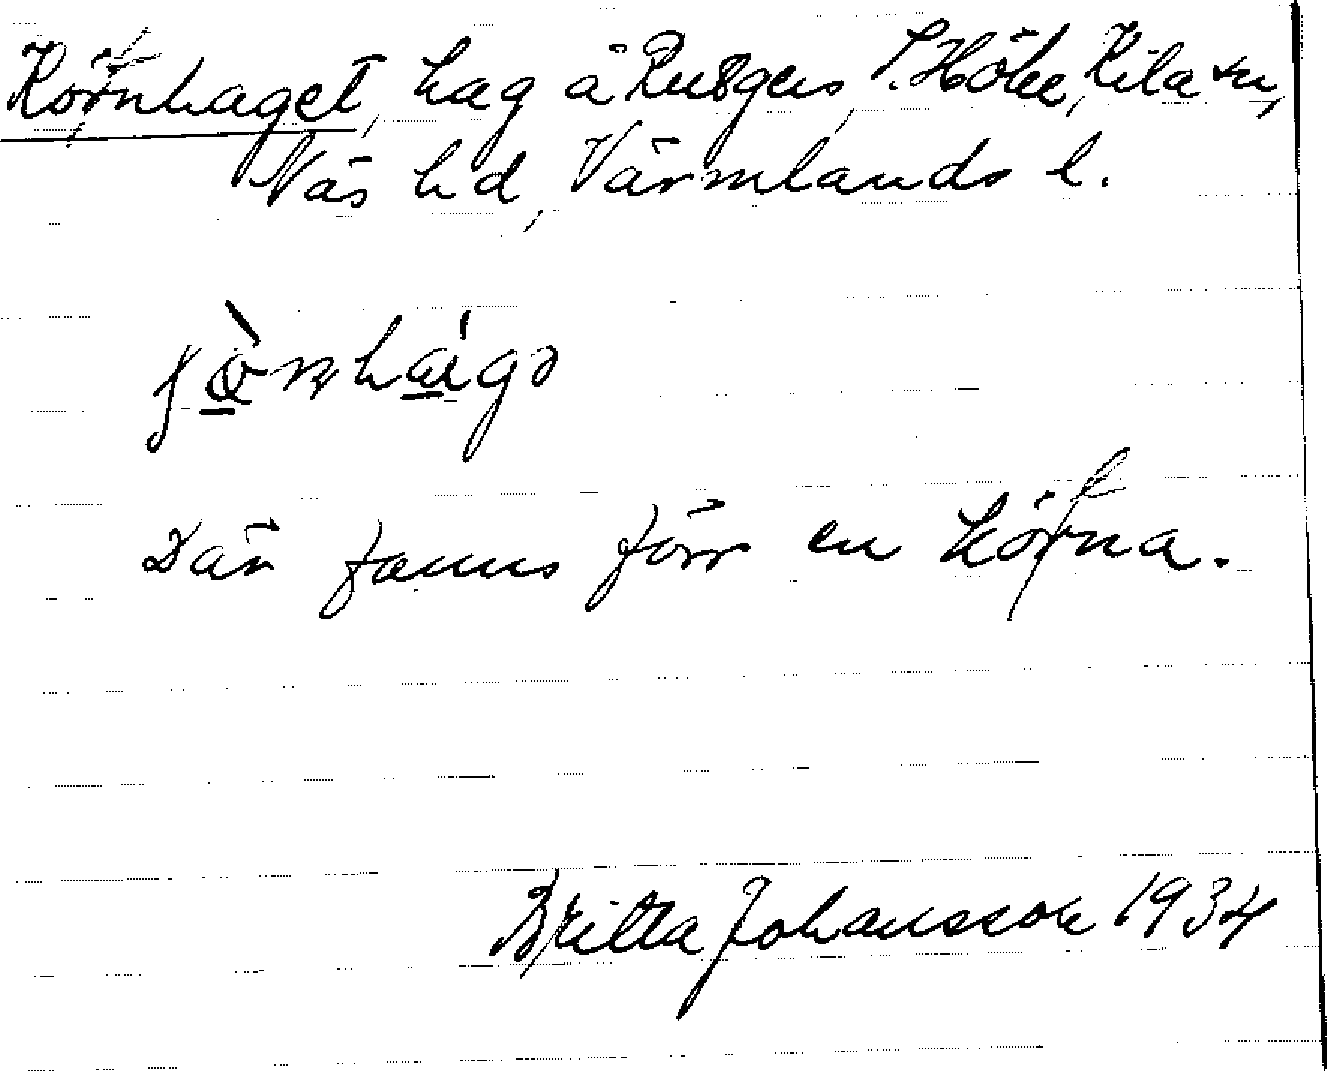 Kölnhaget, hag å Rusgens, S. Höke, Kila sn,
Näs hd, Värmlands l.
Där fanns förr en kölna.
Britta Johansson 1934